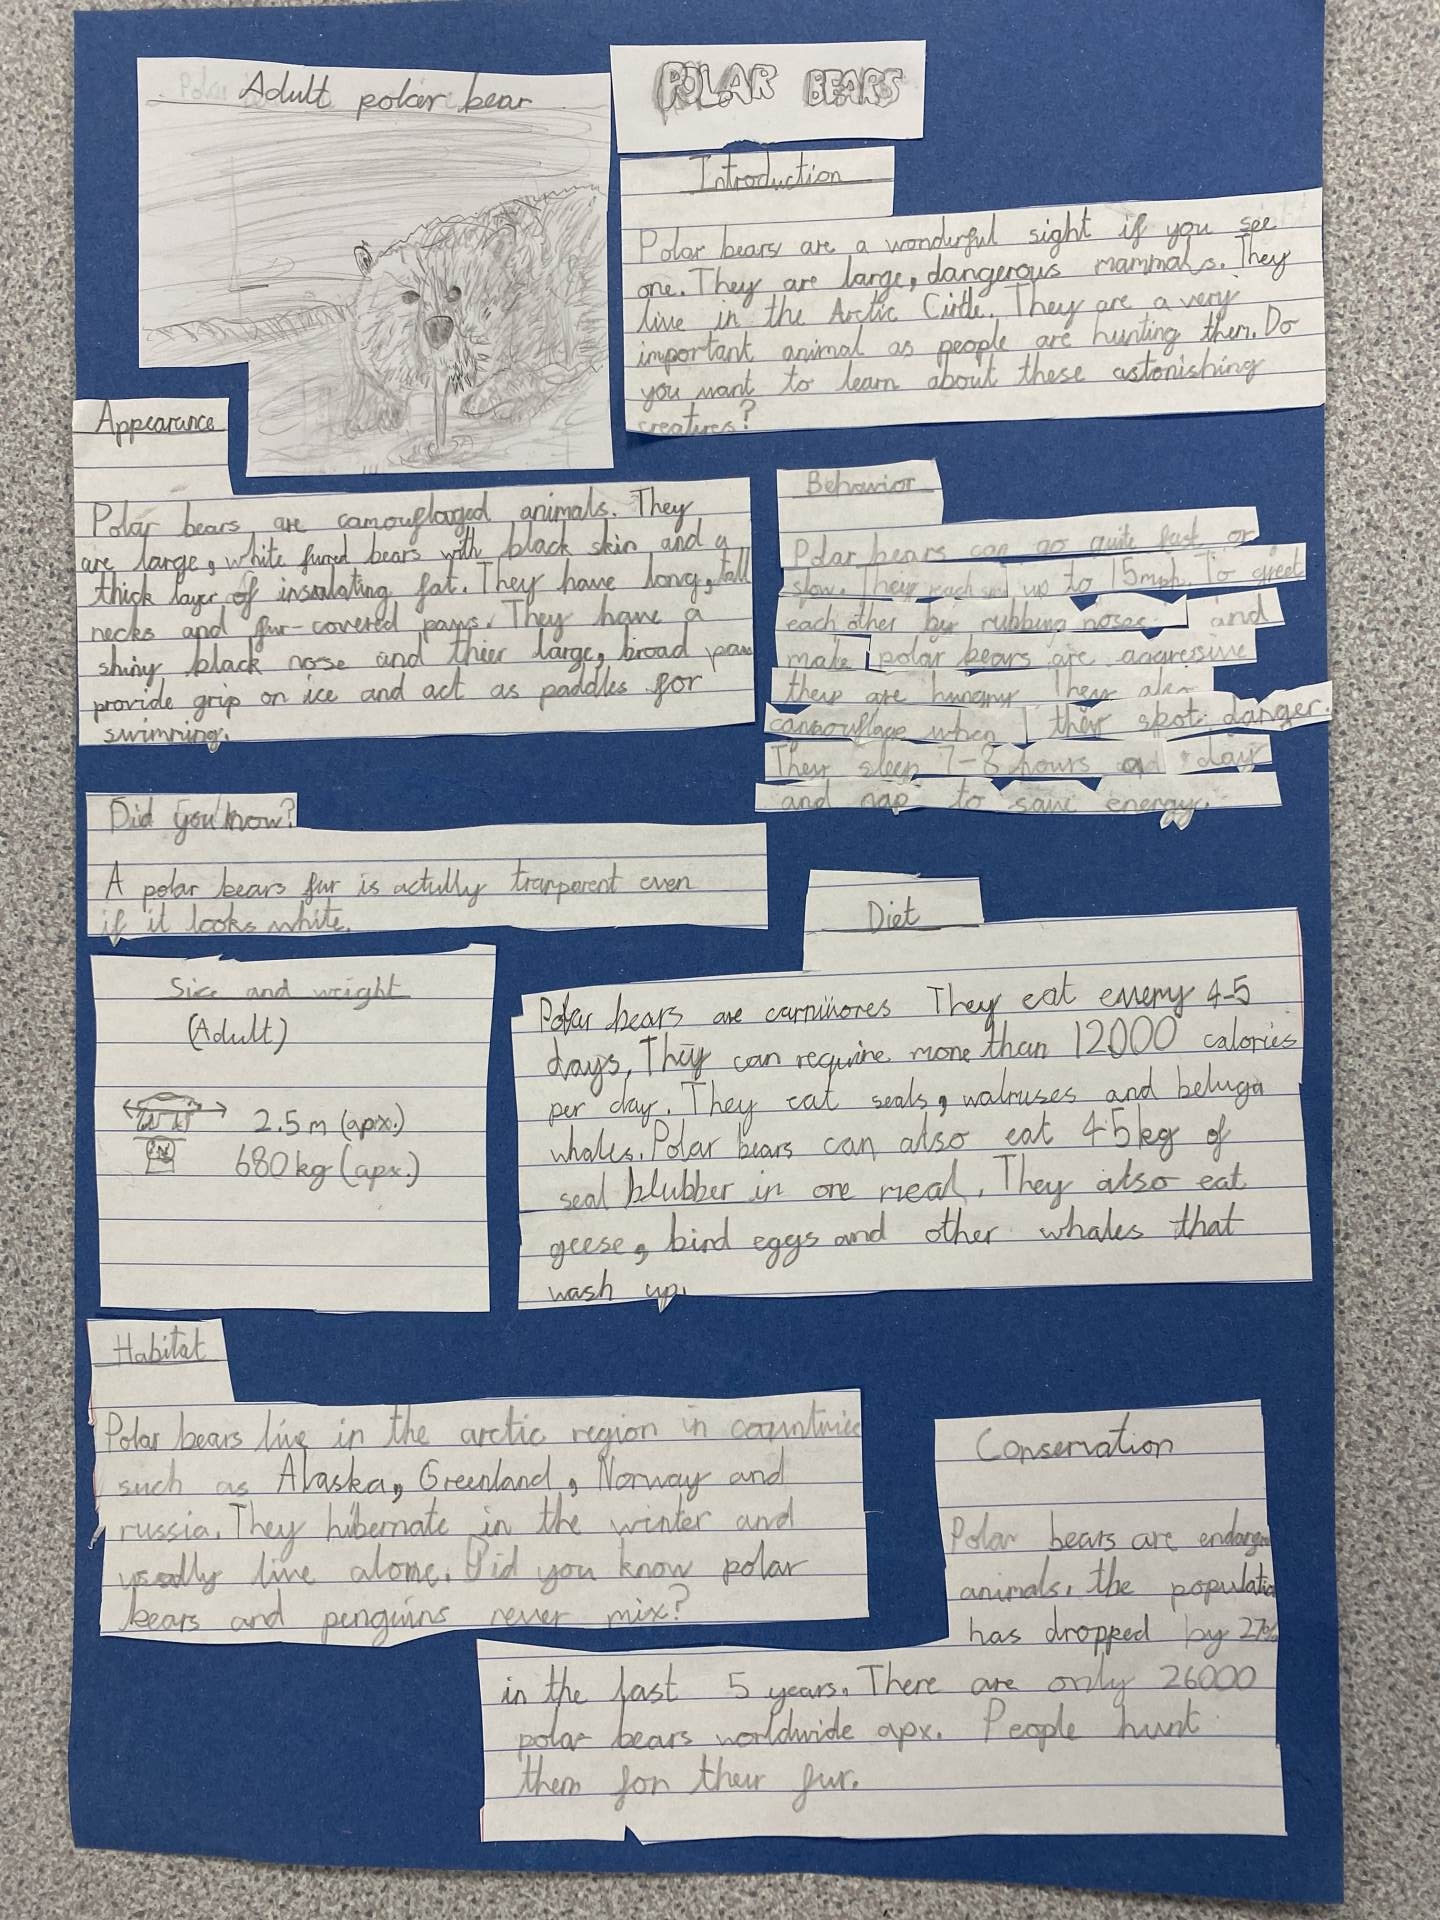 Adult polar bear
POLAR BEARS
Introduction
Polar bears are a wonderful sight if you see
one. They are large, dangerous mammals. They
live in the Arctic Circle. They are a very
important animal as people are hunting them. Do
you want to learn about these astonishing
creatures?
Appearance
Polar bears are camouflaged animals. They
are large, white furred bears with black skin and a
thick layer of insulating fat. They have long, tall
necks and fur-covered paws. They have a
shiny black nose and thier large, broad paw
provide grip on ice and act as paddles for
swimming.
Behavior
Polar bears can go quite fast or
slow. They reach up to 15mph. To greet
each other by rubbing noses. and
make polar bears are aggresive
they are hungry They also
camouflage when they spot danger.
They sleep 7-8 hours a day
and nap to save energy.
Did you know?
A polar bears fur is actully tranparent even
if it looks white.
Size and weight
(Adult)
2.5m (apx.)
680kg (apx.)
Diet
Polar bears are carnivores They eat every 4-5
days. They can require more than 12000 calories
per day. They eat seals, walruses and beluga
whales. Polar bears can also eat 45kg of
seal blubber in one meal. They also eat
geese, bird eggs and other whales that
wash up.
Habitat
Polar bears live in the arctic region in countries
such as Alaska, Greenland, Norway and
russia. They hibernate in the winter and
usually live alone. Did you know polar
bears and penguins never mix?
Conservation
Polar bears are endangered
animals. the population
has dropped by 27%
in the last 5 years. There are only 26000
polar bears worldwide apx. People hunt
them for their fur.